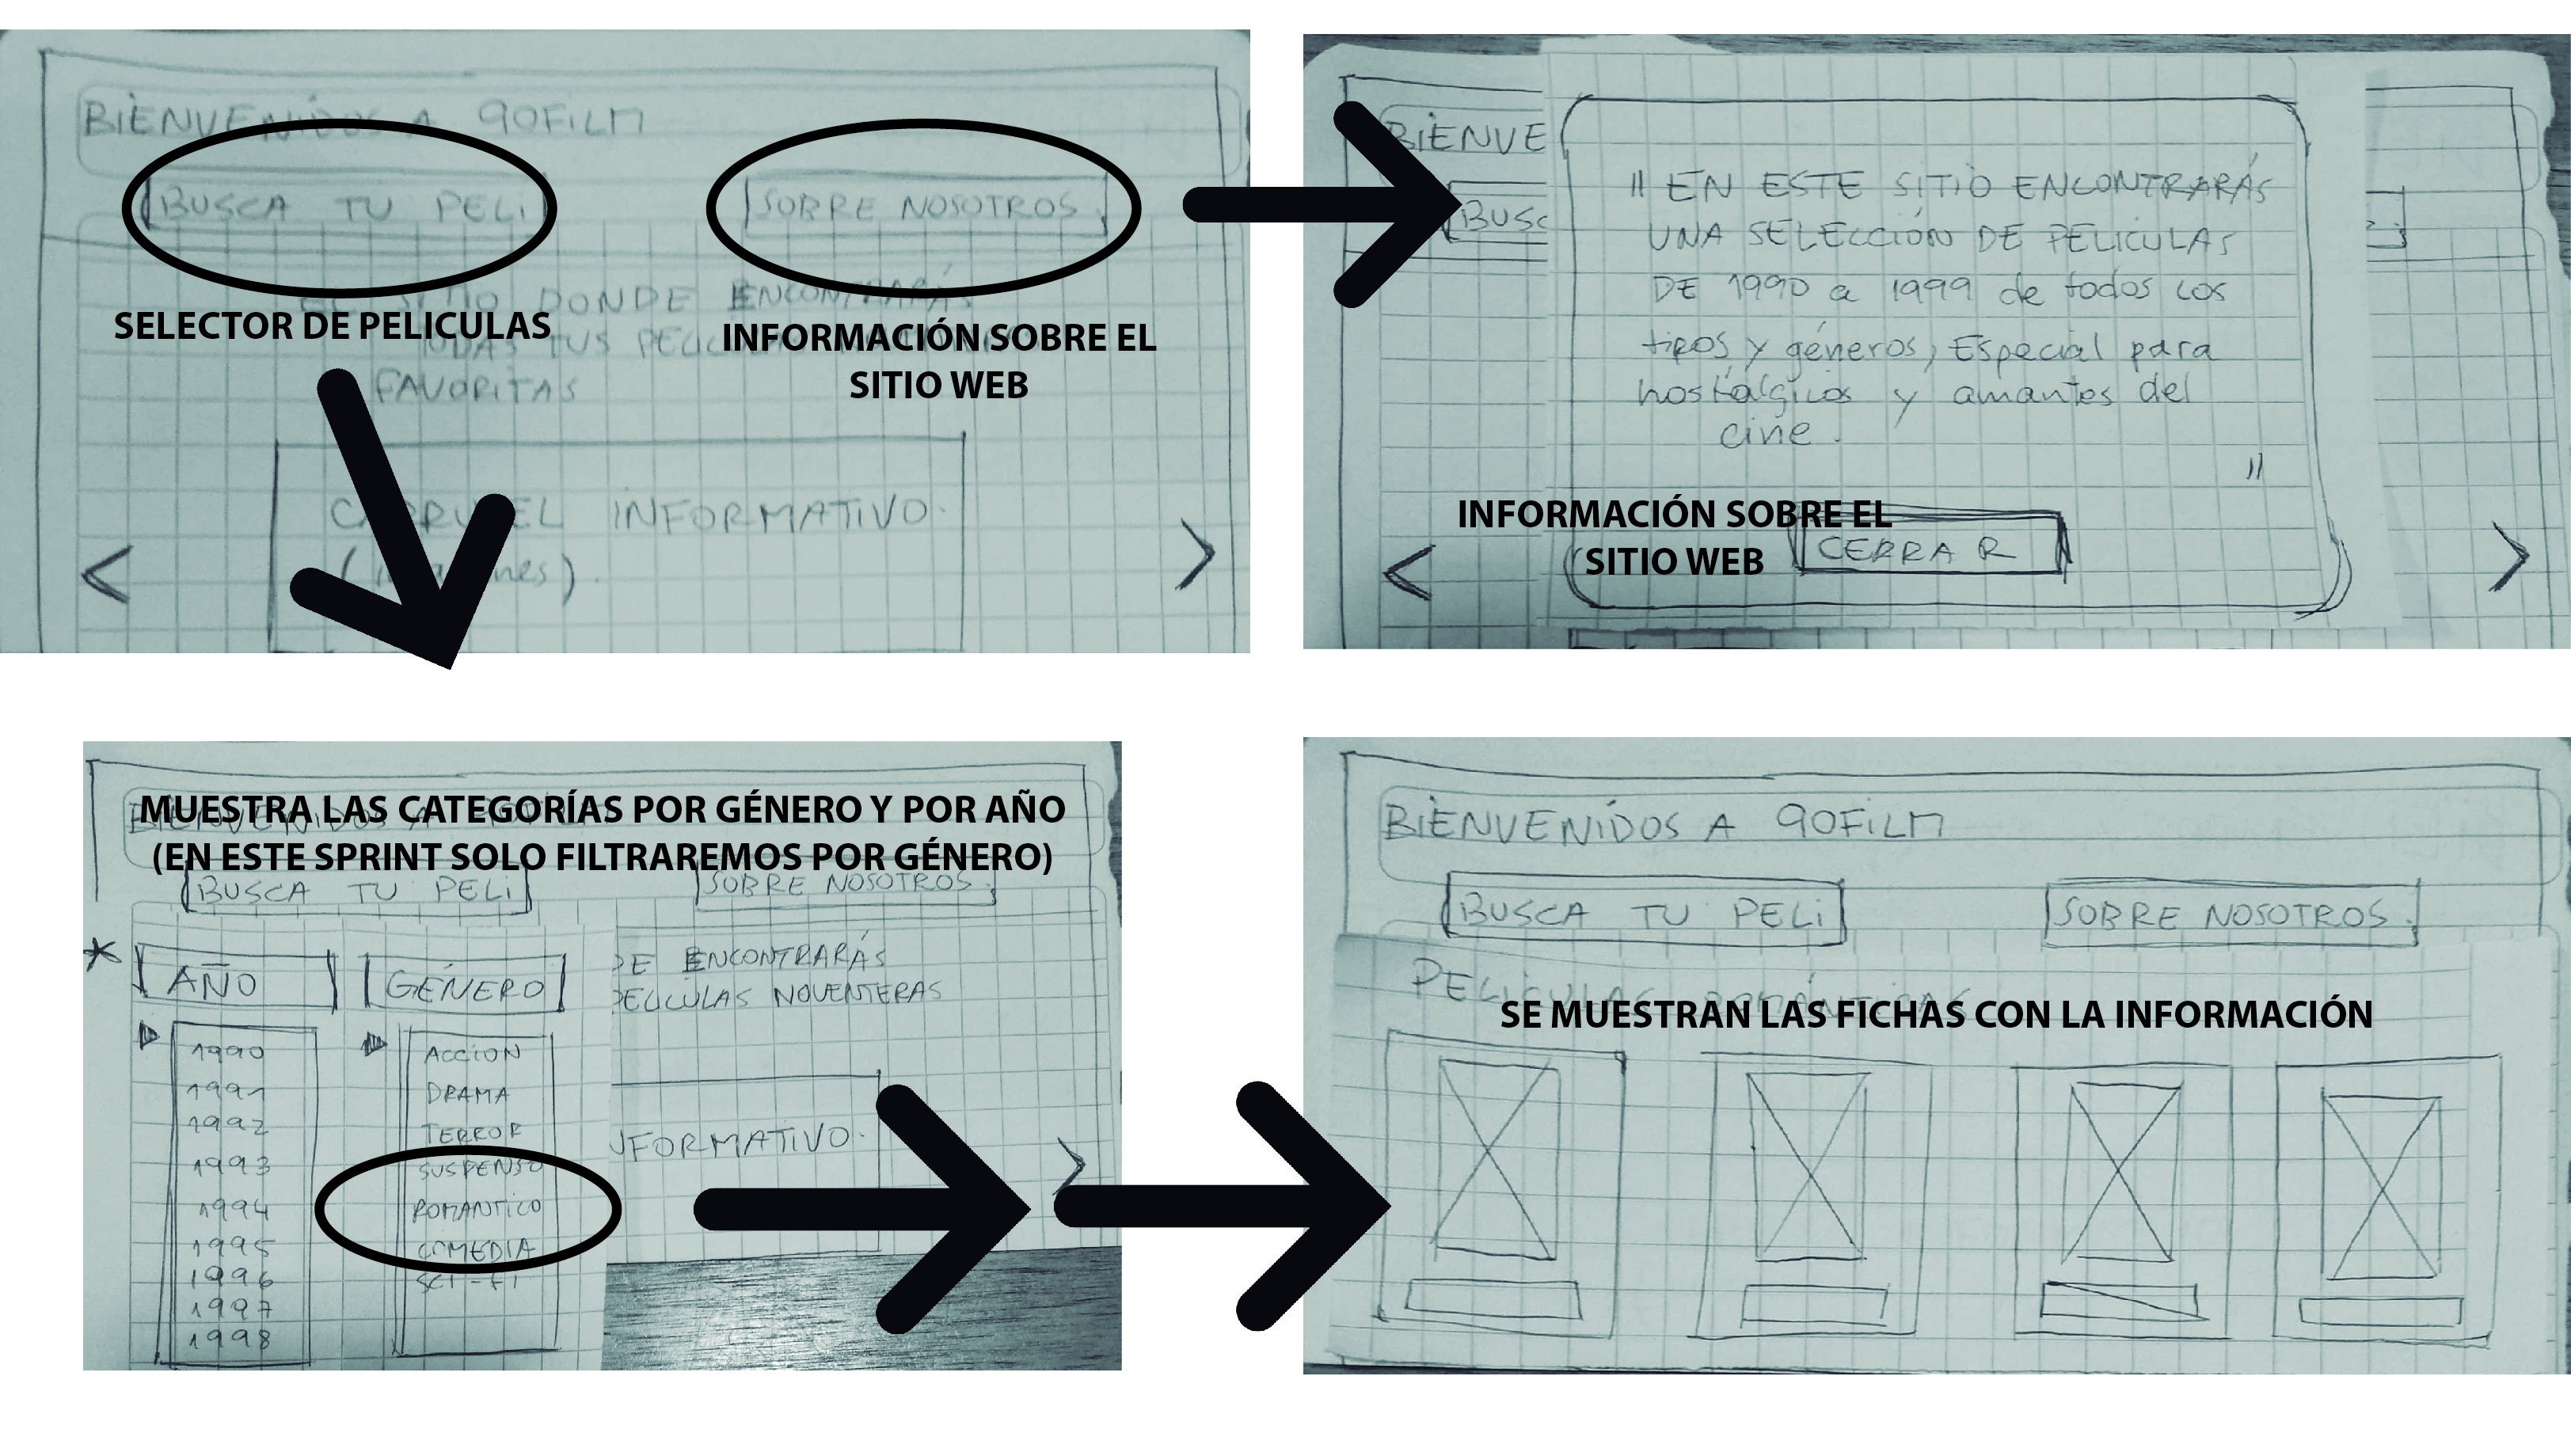 BIENVENIDOS A 90FILM
BUSCA TU PELI
SOBRE NOSOTROS.
SELECTOR DE PELICULAS
INFORMACIÓN SOBRE EL
SITIO WEB
EL SITIO DONDE ENCONTRARÁS
TODAS TUS PELICULAS
FAVORITAS
CARRUEL INFORMATIVO.
(imagenes).
<
>
BIENVE
BUSC
" EN ESTE SITIO ENCONTRARÁS
UNA SELECCIÓN DE PELICULAS
DE 1990 a 1999 de todos los
tipos y géneros, Especial para
nostálgicos y amantes del
cine.
"
INFORMACIÓN SOBRE EL
SITIO WEB
CERRAR
<
>
MUESTRA LAS CATEGORÍAS POR GÉNERO Y POR AÑO
(EN ESTE SPRINT SOLO FILTRAREMOS POR GÉNERO)
BUSCA TU PELI
SOBRE NOSOTROS.
* AÑO
GÉNERO
DE ENCONTRARÁS
PELICULAS NOVENTERAS
1990
1991
1992
1993
1994
1995
1996
1997
1998
ACCION
DRAMA
TERROR
SUSPENSO
ROMANTICO
COMEDIA
SCI-FI
NFORMATIVO.
>
BIENVENIDOS A 90FILM
BUSCA TU PELI
SOBRE NOSOTROS.
PELICULAS ROMÁNTICAS
SE MUESTRAN LAS FICHAS CON LA INFORMACIÓN